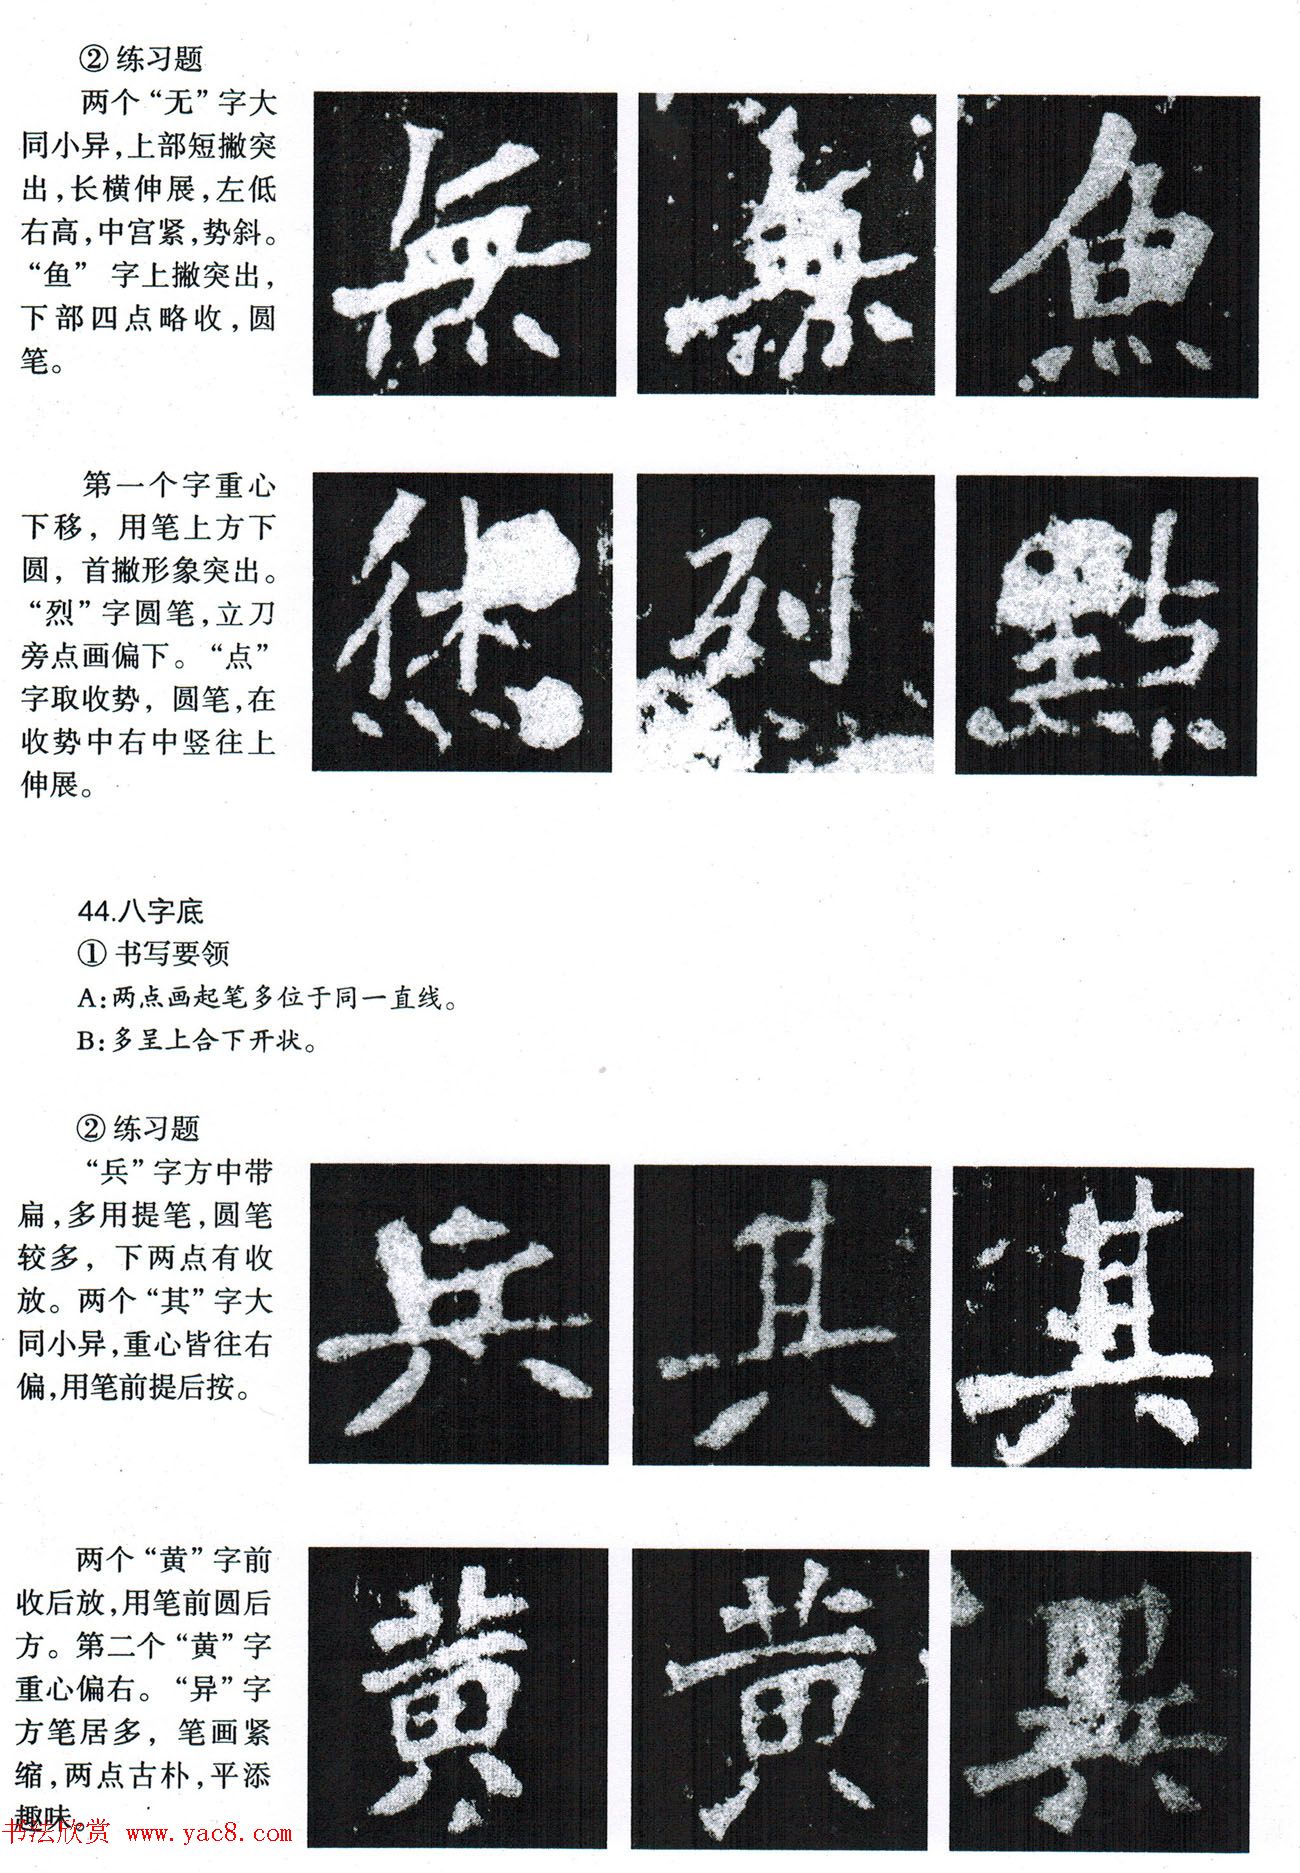 ② 练习题
两个“无”字大
同小异,上部短撇突
出,长横伸展,左低
右高,中宫紧,势斜。
“鱼” 字上撇突出,
下部四点略收,圆
笔。
無 無 魚
第一个字重心
下移, 用笔上方下
圆, 首撇形象突出。
“烈”字圆笔,立刀
旁点画偏下。“点”
字取收势, 圆笔,在
收势中右中竖往上
伸展。
烈 點
44.八字底
① 书写要领
A:两点画起笔多位于同一直线。
B:多呈上合下开状。
② 练习题
“兵”字方中带
扁,多用提笔,圆笔
较多, 下两点有收
放。两个“其”字大
同小异,重心皆往右
偏,用笔前提后按。
兵 其 其
两个“黄”字前
收后放,用笔前圆后
方。第二个“黄”字
重心偏右。“异”字
方笔居多, 笔画紧
缩,两点古朴,平添
趣味。
黄 黄 異
书法欣赏 www.yac8.com